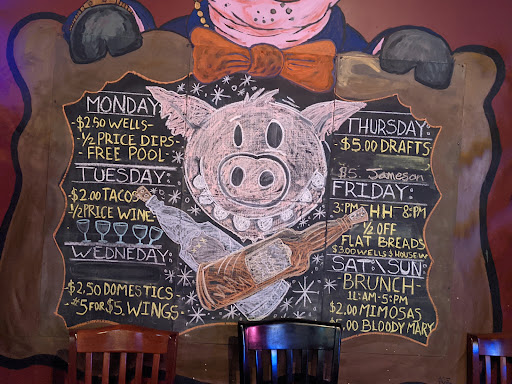 MONDAY:
-$2.50 WELLS-
-½ PRICE DIPS-
-FREE POOL-
TUESDAY:
-$2.00 TACOS
-½ PRICE WINE
WEDNEDAY
-$2.50 DOMESTICS
-5 FOR $5. WINGS-
THURSDAY:
-$5.00 DRAFTS
$5. Jameson
FRIDAY:
3:PM HH 8:PM
½ OFF
FLAT BREADS
$3.00 WELLS & HOUSE W
SAT:\SUN:
BRUNCH-
11:AM-5:PM
$2.00 MIMOSAS
5.00 BLOODY MARY